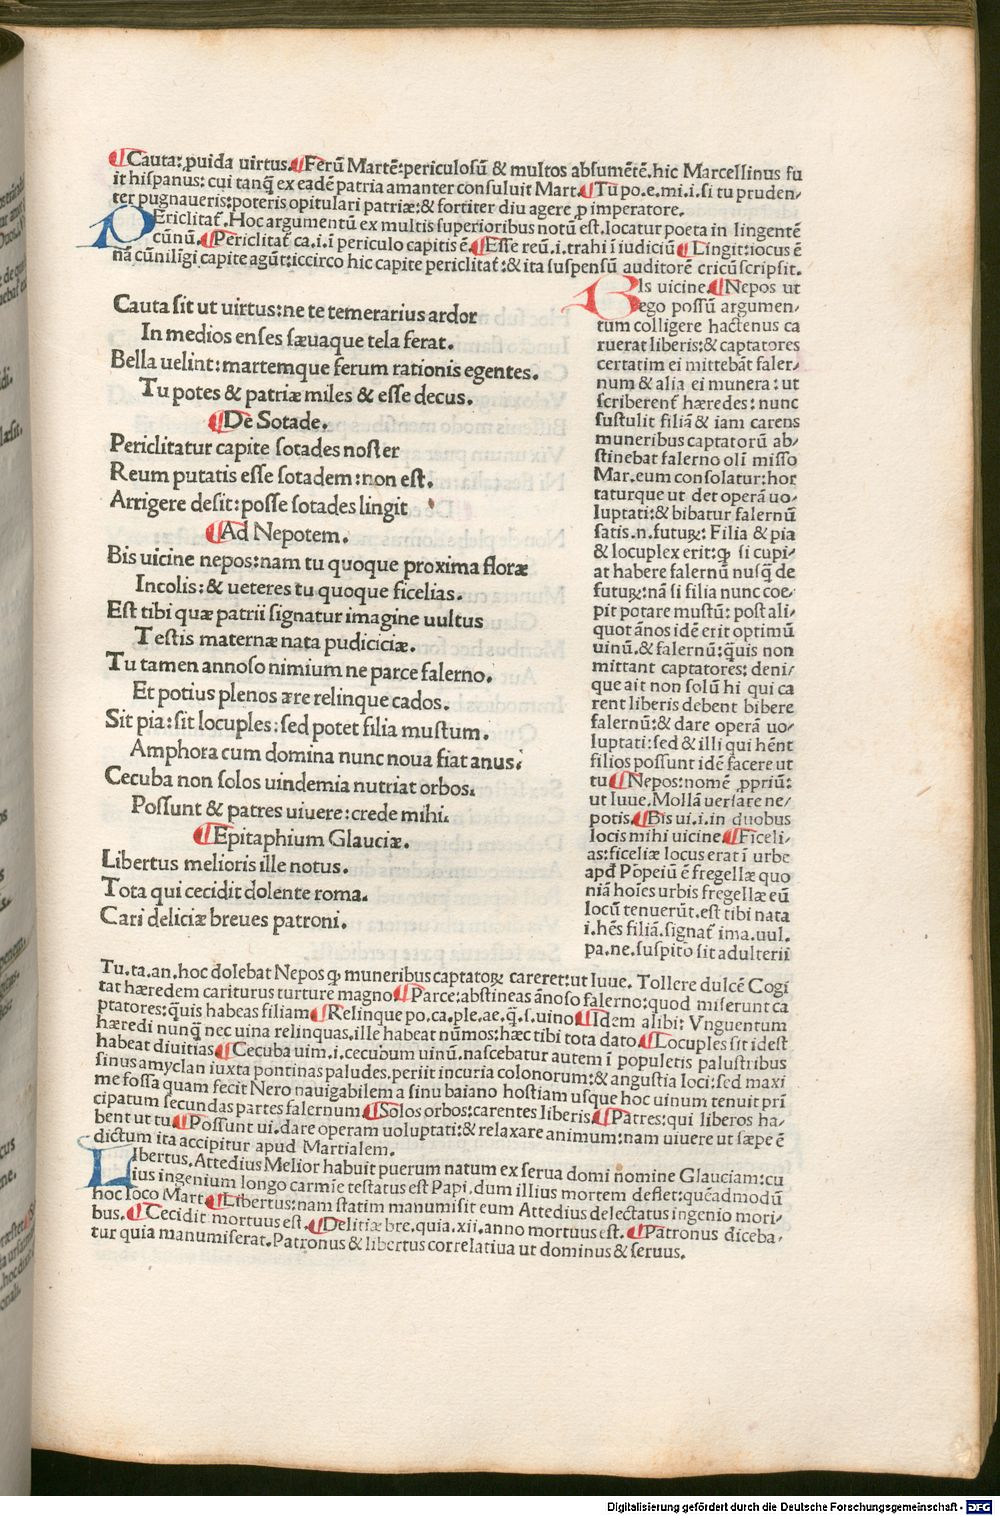 ¶Cauta: ꝓuida uirtus.¶Ferū Martē: periculosū & multos absumētē. hic Marcellinus fu
it hispanus: cui tanq̄ ex eadē patria amanter consuluit Mart.¶Tu po. e. mi. i. si tu pruden/
ter pugnaueris: poteris opitulari patriæ: & fortiter diu agere ꝓ imperatore.
PEriclitat̄. Hoc argumentū ex multis superioribus notū est. Iocatur poeta in lingentē
cūnū.¶Periclitat̄ ca. i. ī periculo capitis ē.¶Esse reū. i. trahi ī iudiciū¶Lingit: iocus ē
nā cūnilīgi capite agūt: iccirco hic capite periclitat̄: & ita suspensū auditorē cricū scripsit.
Cauta sit ut uirtus: ne te temerarius ardor
In medios enses sæuaque tela ferat.
Bella uelint: martemque ferum rationis egentes.
Tu potes & patriæ miles & esse decus.
¶De Sotade.
Periclitatur capite sotades noster
Reum putatis esse sotadem: non est.
Arrigere desit: posse sotades lingit
¶Ad Nepotem.
Bis uicine nepos: nam tu quoque proxima floræ
Incolis: & ueteres tu quoque ficelias.
Est tibi quæ patrii signatur imagine uultus
Testis maternæ nata pudiciciæ.
Tu tamen annoso nimium ne parce falerno.
Et potius plenos ære relinque cados.
Sit pia: sit locuples: sed potet filia mustum.
Amphora cum domina nunc noua fiat anus:
Cecuba non solos uindemia nutriat orbos.
Possunt & patres uiuere: crede mihi.
¶Epitaphium Glauciæ.
Libertus melioris ille notus.
Tota qui cecidit dolente roma.
Cari deliciæ breues patroni.
BIs uicine.¶Nepos ut
ego possū argumen/
tum colligere hactenus ca
ruerat liberis: & captatores
certatim ei mittebāt faler/
num & alia ei munera: ut
scriberent̄ hæredes: nunc
sustulit filiā & iam carens
muneribus captatorū ab/
stinebat falerno olī misso
Mar. eum consolatur: hor
taturque ut det operā uo/
luptati: & bibatur falernū
satis. n. futuꝝ: Filia & pia
& locuplex erit: ꝙ si cupi/
at habere falernū nusq̄ de
futuꝝ: nā si filia nunc coe/
pit potare mustū: post ali/
quot ānos idē erit optimū
uinū. & falernū: q̄uis non
mittant captatores: deni/
que ait non solū hi qui ca
rent liberis debent bibere
falernū: & dare operā uo/
luptati: sed & illi qui hēnt
filios possunt idē facere ut
tu¶Nepos: nomē ꝓpriū:
ut Iuue. Mollā uersare ne/
potis.¶Bis ui. i. in duobus
locis mihi uicine¶Ficeli/
as: ficeliæ locus erat ī urbe
apđ Pōpeiū ē fregellæ quo
niā hoīes urbis fregellæ eū
locū tenuerūt. est tibi nata
i. hēs filiā. signat̄ ima. uul.
pa. ne. suspito sit adulterii
Tu. ta. an. hoc dolebat Nepos ꝙ muneribus captatoꝝ careret: ut Iuue. Tollere dulcē Cogi
tat hæredem cariturus turture magno¶Parce: abstineas ānoso falerno: quod miserunt ca
ptatores: q̄uis habeas filiam¶Relinque po. ca. ple. ae. q̄. s. uino¶Idem alibi: Vnguentum
hæredi nunq̄ nec uina relinquas. ille habeat nūmos: hæc tibi tota dato¶Locuples sit idest
habeat diuitias¶Cecuba uim. i. cecubum uinū. nascebatur autem ī populetis palustribus
sinus amyclan iuxta pontinas paludes. periit incuria colonorum: & angustia loci: sed maxi
me fossa quam fecit Nero nauigabilem a sinu baiano hostiam usque hoc uinum tenuit prī
cipatum secundas partes falernum¶Solos orbos: carentes liberis¶Patres: qui liberos ha/
bent ut tu¶Possunt ui. dare operam uoluptati: & relaxare animum: nam uiuere ut sæpe ē
dictum ita accipitur apud Martialem.
LIbertus. Attedius Melior habuit puerum natum ex serua domi nomine Glauciam: cu
ius ingenium longo carmīe testatus est Papi. dum illius mortem deflet: quēadmodū
hoc loco Mart¶Libertus: nam statim manumisit eum Attedius delectatus ingenio mori/
bus.¶Cecidit mortuus est.¶Delitiæ bre. quia. xii. anno mortuus est.¶Patronus diceba/
tur quia manumiserat. Patronus & libertus correlatiua ut dominus & seruus.
Digitalisierung gefördert durch die Deutsche Forschungsgemeinschaft - DFG